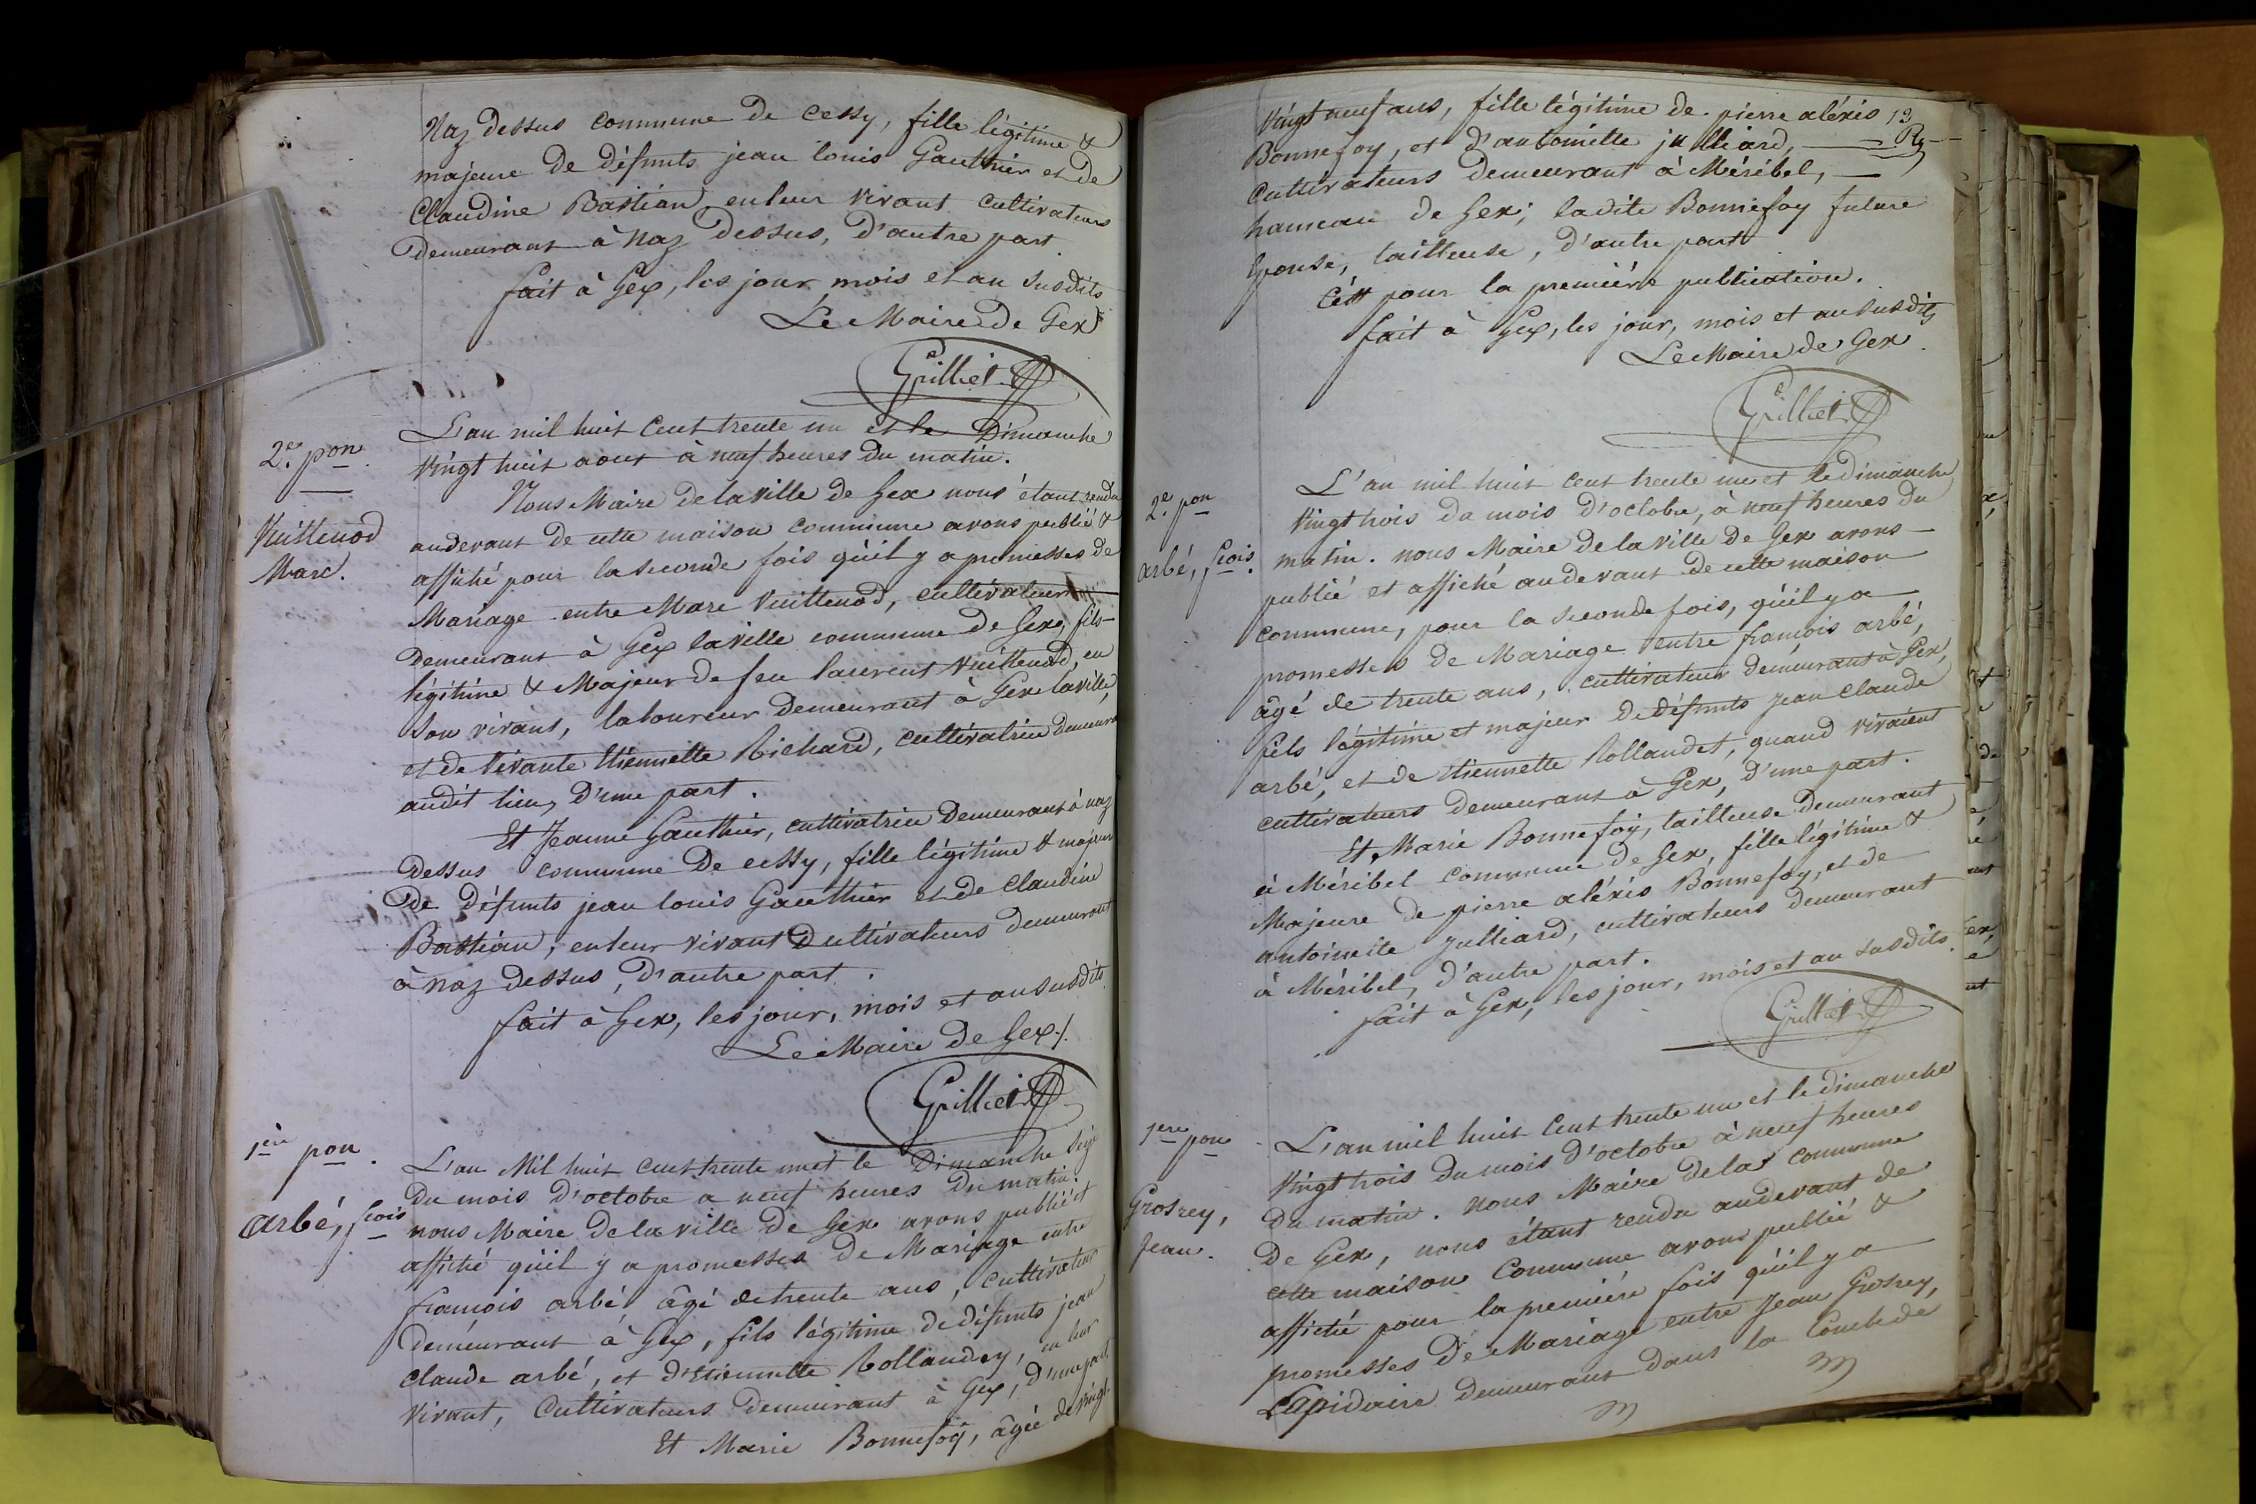 Naz dessus commune de Cessy, fille légitime &
majeure de défunts jean louis Gauthier et de
Claudine Bastian, en leur vivant cultivateurs
demeurant à Naz dessus, d'autre part
fait à Gex, les jour, mois et an susdits
Le Maire de Gex
Grilliet
2e. pon.
Vuillenod
Marc.
L'an mil huit cent trente un et le Dimanche
vingt huit aout à neuf heures du matin.
Nous Maire de la ville de Gex nous étant rendu
audevant de cette maison commune avons publié &
affiché pour la seconde fois qu'il y a promesses de
Mariage entre Marc Vuillenod, cultivateur
demeurant à Gex la ville commune de Gex, fils
légitime & Majeur de feu laurent Vuillenod, en
son vivant, laboureur demeurant à Gex la ville,
et de vivante étiennette Richard, cultivatrice demeurant
audit lieu, d'une part.
Et Jeanne Gauthier, cultivatrice demeurant à naz
dessus commune de cessy, fille légitime & majeure
de défunts jean louis Gauthier et de Claudine
Bastian, en leur vivant cultivateurs demeurant
à naz dessus, d'autre part.
fait à Gex, les jour, mois et an susdits
Le Maire de Gex /.
Grilliet
1ère pon.
arbé, fcois
L'an Mil huit cent trente un et le Dimanche seize
du mois d'octobre a neuf heures du matin.
nous Maire de la ville de Gex avons publié et
affiché qu'il y a promesses de Mariage entre
françois arbé âgé de trente ans, cultivateur
demeurant à Gex, fils légitime de défunts jean
claude arbé, et d'Etiennette Rollandey, en leur
vivant, Cultivateurs demeurant à Gex, d'une part,
Et Marie Bonnefoy, âgée de vingt
vingt neuf ans, fille légitime de pierre aléxis 13
Bonnefoy, et d'antoinette julliard,
cultivateurs demeurant à Méribel,
hameau de Gex; ladite Bonnefoy future
épouse, tailleuse, d'autre part
C'est pour la première publication.
fait à Gex, les jour, mois et an susdits
Le Maire de Gex.
Grilliet
2e. pon
arbé, fcois.
L'an mil huit cent trente un et le dimanche
vingt trois du mois d'octobre, à neuf heures du
matin. nous Maire de la ville de Gex avons
publié et affiché audevant de cette maison
commune, pour la seconde fois, qu'il y a
promesses de Mariage entre françois arbé,
âgé de trente ans, cultivateur demeurant à Gex,
fils légitime et majeur de défunts Jean Claude
arbé, et de étiennette Rollandet, quand vivaient
cultivateurs demeurant à Gex, d'une part.
Et Marie Bonnefoy, tailleuse demeurant
à Méribel commune de Gex, fille légitime &
Majeure de pierre aléxis Bonnefoy, et de
antoinette Julliard, cultivateurs demeurant
à Méribel, d'autre part.
fait à Gex, les jour, mois et an susdits.
Grilliet
1ere pon
Grosrey,
Jean.
L'an mil huit cent trente un et le dimanche
vingt trois du mois d'octobre à neuf heures
du matin. Nous Maire de la commune
de Gex, nous étant rendu audevant de
cette maison commune avons publié &
affiché pour la première fois qu'il y a
promesses de Mariage entre Jean Grosrey,
Lapidaire demeurant dans la Combe de